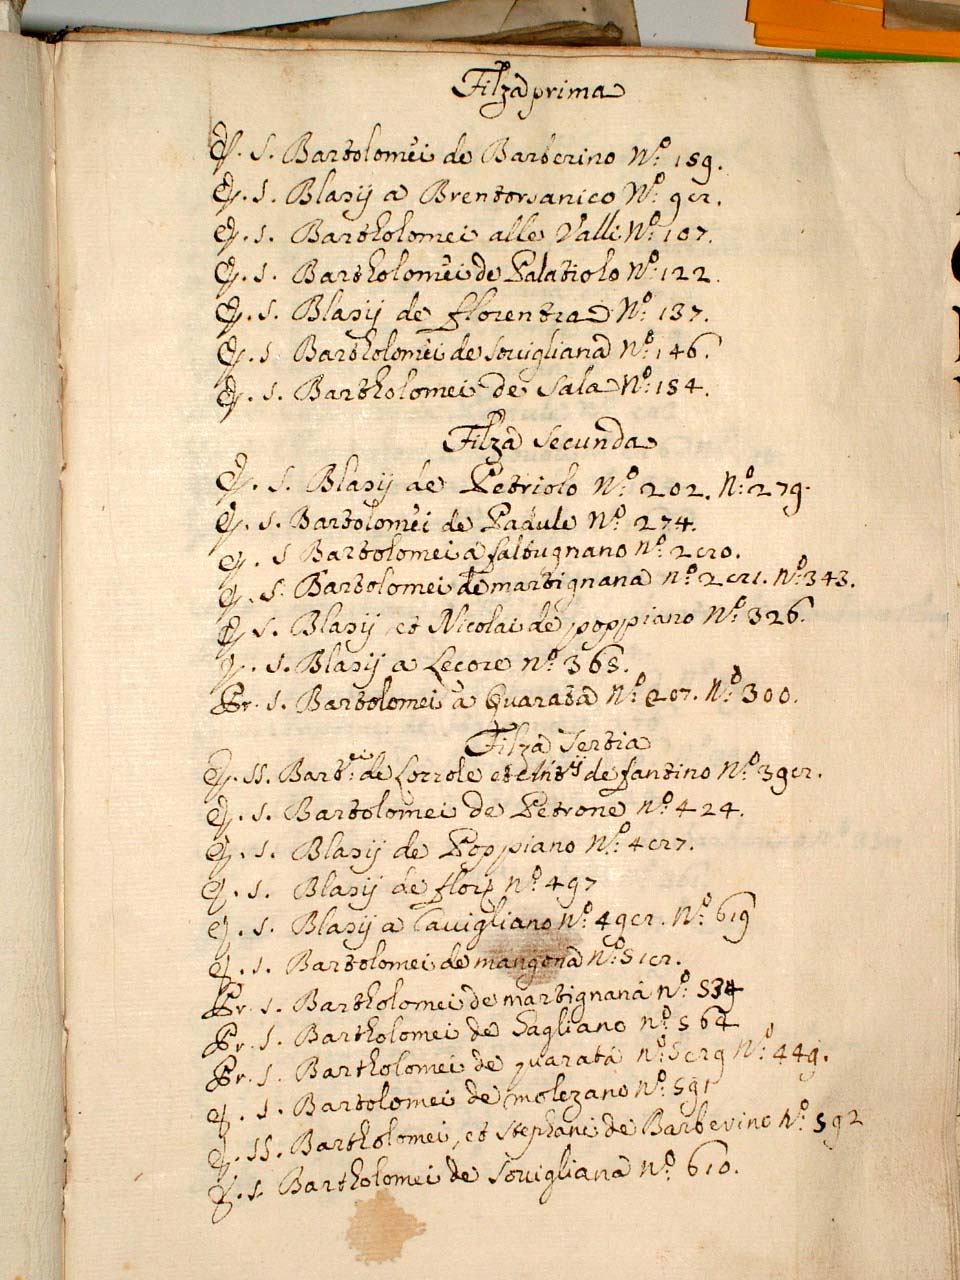 Filza prima
E. S. Bartolomei de Barberino Nº 159.
E. S. Blasij a Brentorsanico Nº. 98.
E. S. Bartholomei alle Valli Nº. 107.
E. S. Bartholomei de Palatiolo Nº. 122.
E. S. Blasij de florentia Nº. 137.
E. S. Bartholomei de Sovigliana Nº. 146.
E. S. Bartholomei de Sala Nº. 154.
Filza Secunda
E. S. Blasij de Petriolo Nº. 202. Nº. 279.
E. S. Bartolomei de Padule Nº. 274.
E. S Bartolomei a faltugnano nº. 280.
E. S. Bartolomei de martignana nº. 281. Nº. 343.
E S. Blasij et Nicolai de poppiano Nº. 326.
E. S. Blasij a Lecore nº. 365.
Pr. S. Bartolomei a Quarata Nº. 207. Nº. 300.
Filza Tertia
E. SS. Bart.ei de Corzole et de fantino Nº. 398.
E. S. Bartolomei de Petrone nº. 424.
E. S. Blasij de Poppiano Nº. 487.
E. S. Blasij de nº. 497
E. S. Blasij a Cavigliano nº. 498. Nº. 619
E. S. Bartolomei de mangona nº. 518.
Pr. S. Bartholomei de martignana nº. 534
Pr. S. Bartholomei de Gagliano nº. 564
Pr. S. Bartholomei de quarata nº. 589 Nº. 449.
E. S. Bartolomei de molezano nº. 591
E. SS. Bartholomei, et Stephani de Barberino Nº. 592
E. S. Bartholomei de Sovigliana nº. 610.